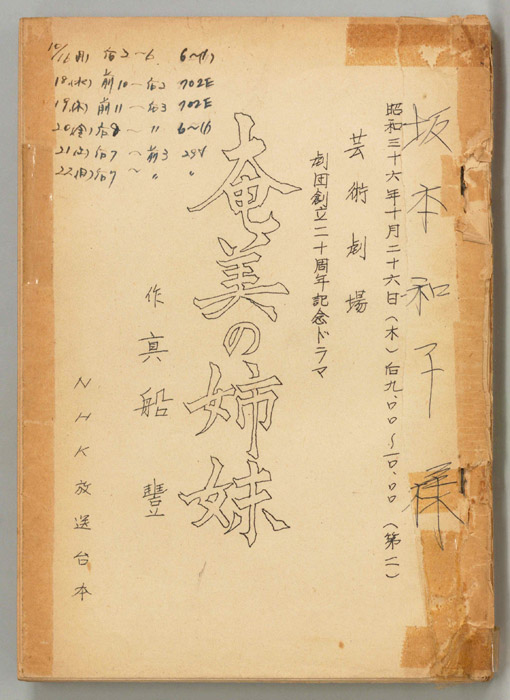 坂本和子様
昭和三十六年十月二十六日(木)后九.00〜一0.00(第二)
芸術劇場
劇団創立二十周年記念ドラマ
奄美の姉妹
作 真船 豊
NHK放送台本
10/16(月) 后2〜6
18(水) 前10〜后2 702E
19(木) 前11〜后3 702E
20(金)后8〜〃
21(土)后7〜前3
22(日)后7〜〃 〃